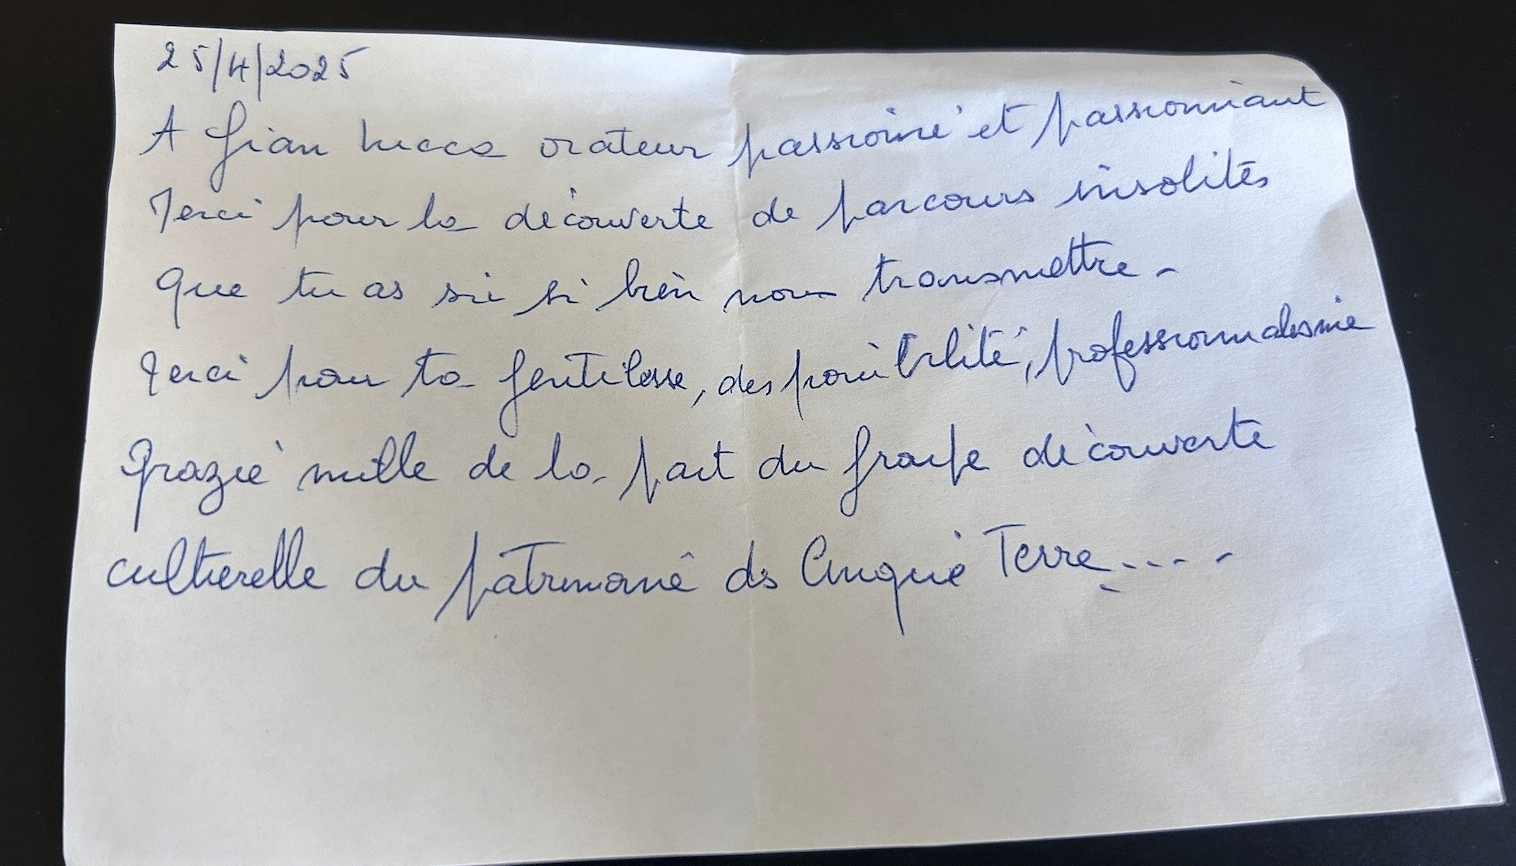 25/4/2025
A Gian Lucca orateur passioné et passionnant
Merci pour la découverte de parcours insolites
que tu as su si bien nous transmettre -
Merci pour ta gentilesse, disponibilité, professionnalisme
Grazie mille de la part du groupe découverte
culturelle du patrimoine ds Cinque Terre....-